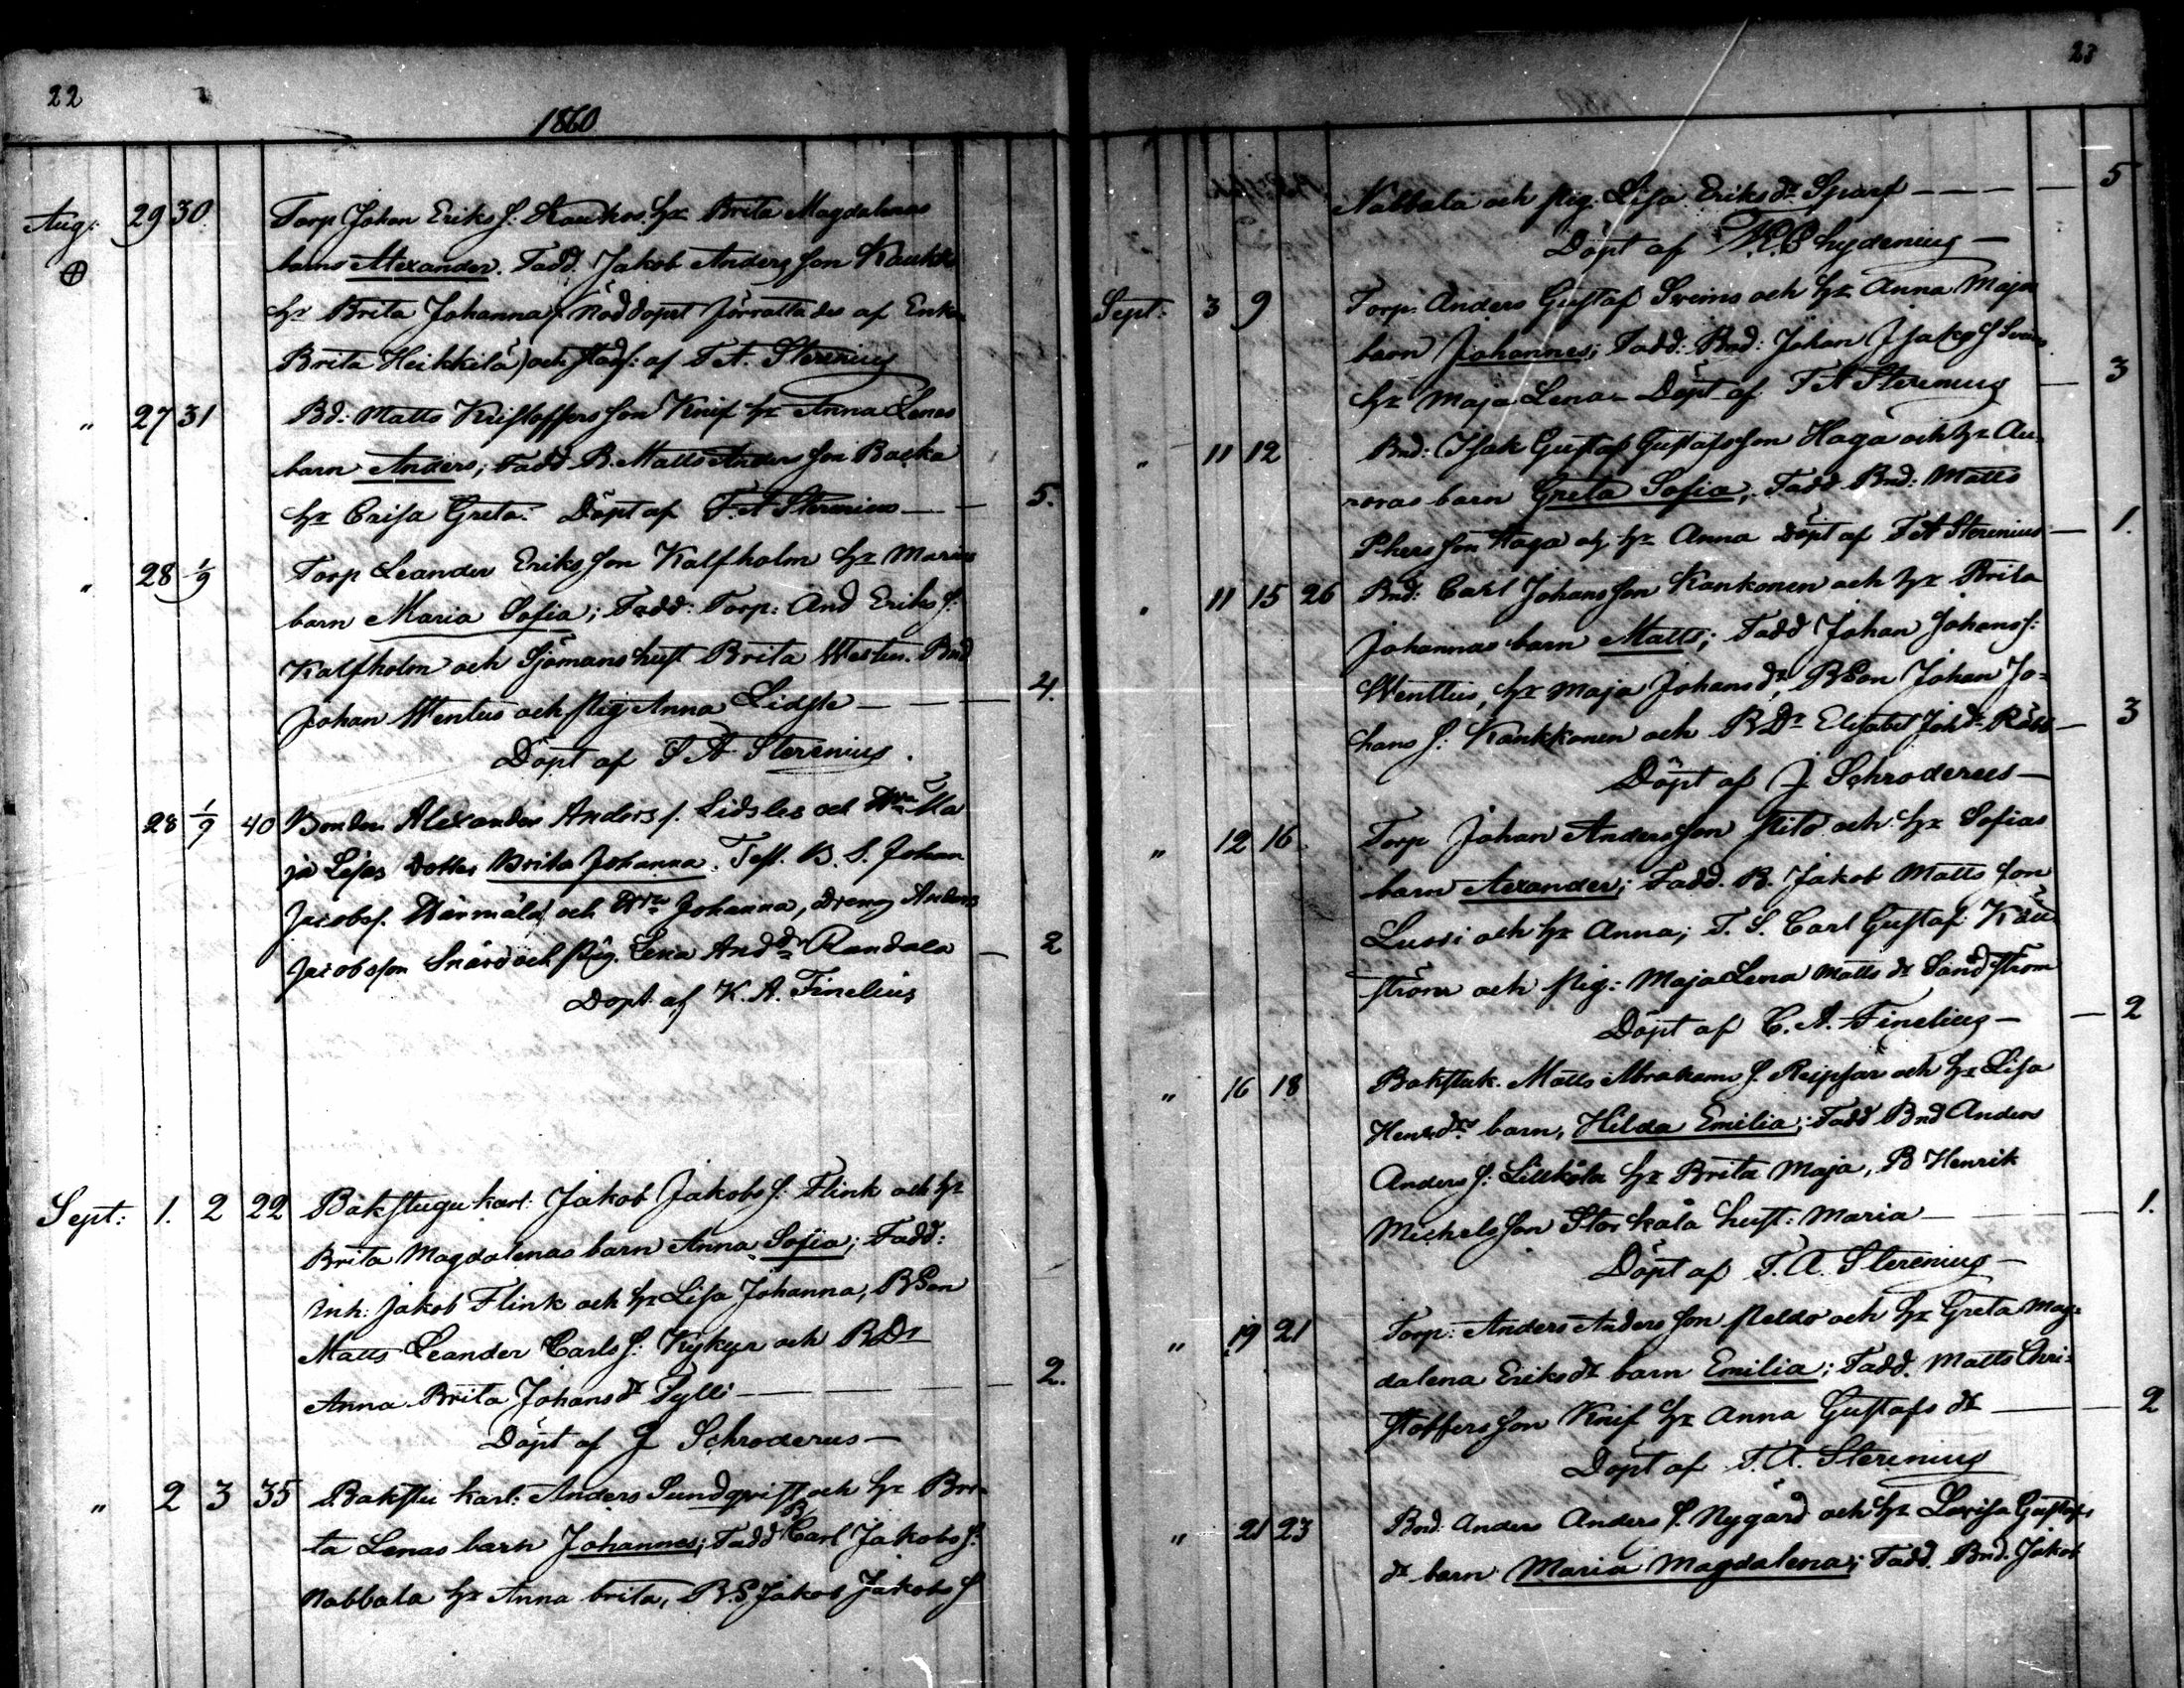 22
1860
Aug: 29 30. Torp Johan Eriks s: Kaukos hr Brita Magdalenas
barns Alexander. Fadd. Jakob Anders son Kaukko
hr Brita Johanna, Nöddopet förrattades af Enkan
Brita Heikkilä) och stadf: af F A. Sterenius
" 27 31 Bd: Matts Kristoffers son Knif hr Anna Lenas
barn Anders; Fadd B. Matts Anders son Backa
hr Caisa Greta. Döpt af F. A Sterenius — 5.
" 28 1/9 Torp Leander Eriks son Kalfholm hr Marias
barn Maria Sofia; Fadd: Torp: And Eriks s:
Kalfholm och Sjömans hust Brita Westus. Bnd
Johan Wentus och pig Anna Lidsle — 4.
Döpt af F A Sterenius.
28 1/9 40 Bonden Alexander Anders s. Lidsles och Hru Ma
ja Lisas dotter Brita Johanna. Test. B. S. Johan
Jacobs s. Wärmälä och Hru Johanna, dreng Anders
Jacobsson Snåre och pig. Lena And dr Randala — 2
Döpt af K. A. Finelius
Sept: 1. 2 22 Bakstugu karl: Jakob Jakobs s: Flink och hr
Brita Magdalenas barn Anna Sofia; Fadd:
Inh: Jakob Flink och hr Lisa Johanna; B Son
Matts Leander Carls s: Kykyr och B Dr
Anna Brita Johans dr Tylli — 2.
Döpt af J Schroderus —
" 2 3 35 Bakstu karl: Anders Sundqvist och hr Bri-
ta Lenas barn Johannes; Fadd B Carl Jakobs s:
Nabbala hr Anna brita, B. S. Jakob Jakobs s
23
Nabbala och pig. Lisa Eriks dr Sparf — 5
Döpt af Lydenius —
Sept: 3 9 Torp. Anders Gustaf Sveins och hr Anna Maja
barn Johannes; Fadd: Bnd: Johan Isaks s Sveins
hr Maja Lena. Döpt af F A Sterenius — 3
" 11 12 Bnd: Isak Gustaf Gustafsson Haga och hr Au-
roras barn Greta Sofia; Fadd Bnd: Matts
Phers son Haga och hr Anna Döpt af F A Sterenius — 1.
" 11 15 26 Bnd: Carl Johans son Kankonen och hr Brita
Johannas barn Matts; Fadd Johan Johans s:
Wenttus, hr Maja Johans dr, B Son Johan Jo-
hans s: Kankkonen och B Dr Elisabet Joh dr Räbb — 3
Döpt af J Schroderus —
" 12 16. Torp Johan Anders son och hr Sofias
barn Alexander; Fadd. B. Jakob Matts son
Lussi och hr Anna; T. S. Carl Gustaf
ström och pig: Maja Lena Matts dr Sandström
Döpt af C. A. Finelius — 2
" 16 18 Bakstuk. Matts Abrahams s. Reipsar och hr Lisa
Henr drs barn, Hilda Emilia; Fadd Bnd Anders
Anders s: Lillkåla hr Brita Maja, B Henrik
Michels son Storkåla hust: Maria — 1.
Döpt af F. A. Sterenius —
" 19 21 Torp: Anders Anders son och hr Greta Mag-
dalena Eriks dr barn Emilia; Fadd. Matts Chri-
stoffers son Knif hr Anna Gustafs dr — 2
Döpt af F. A. Sterenius
" 21 23 Bnd: Anders Anders s. Nygård och hr Lovisa Gustafs
dr barn Maria Magdalena; Fadd. Bnd. Jakob